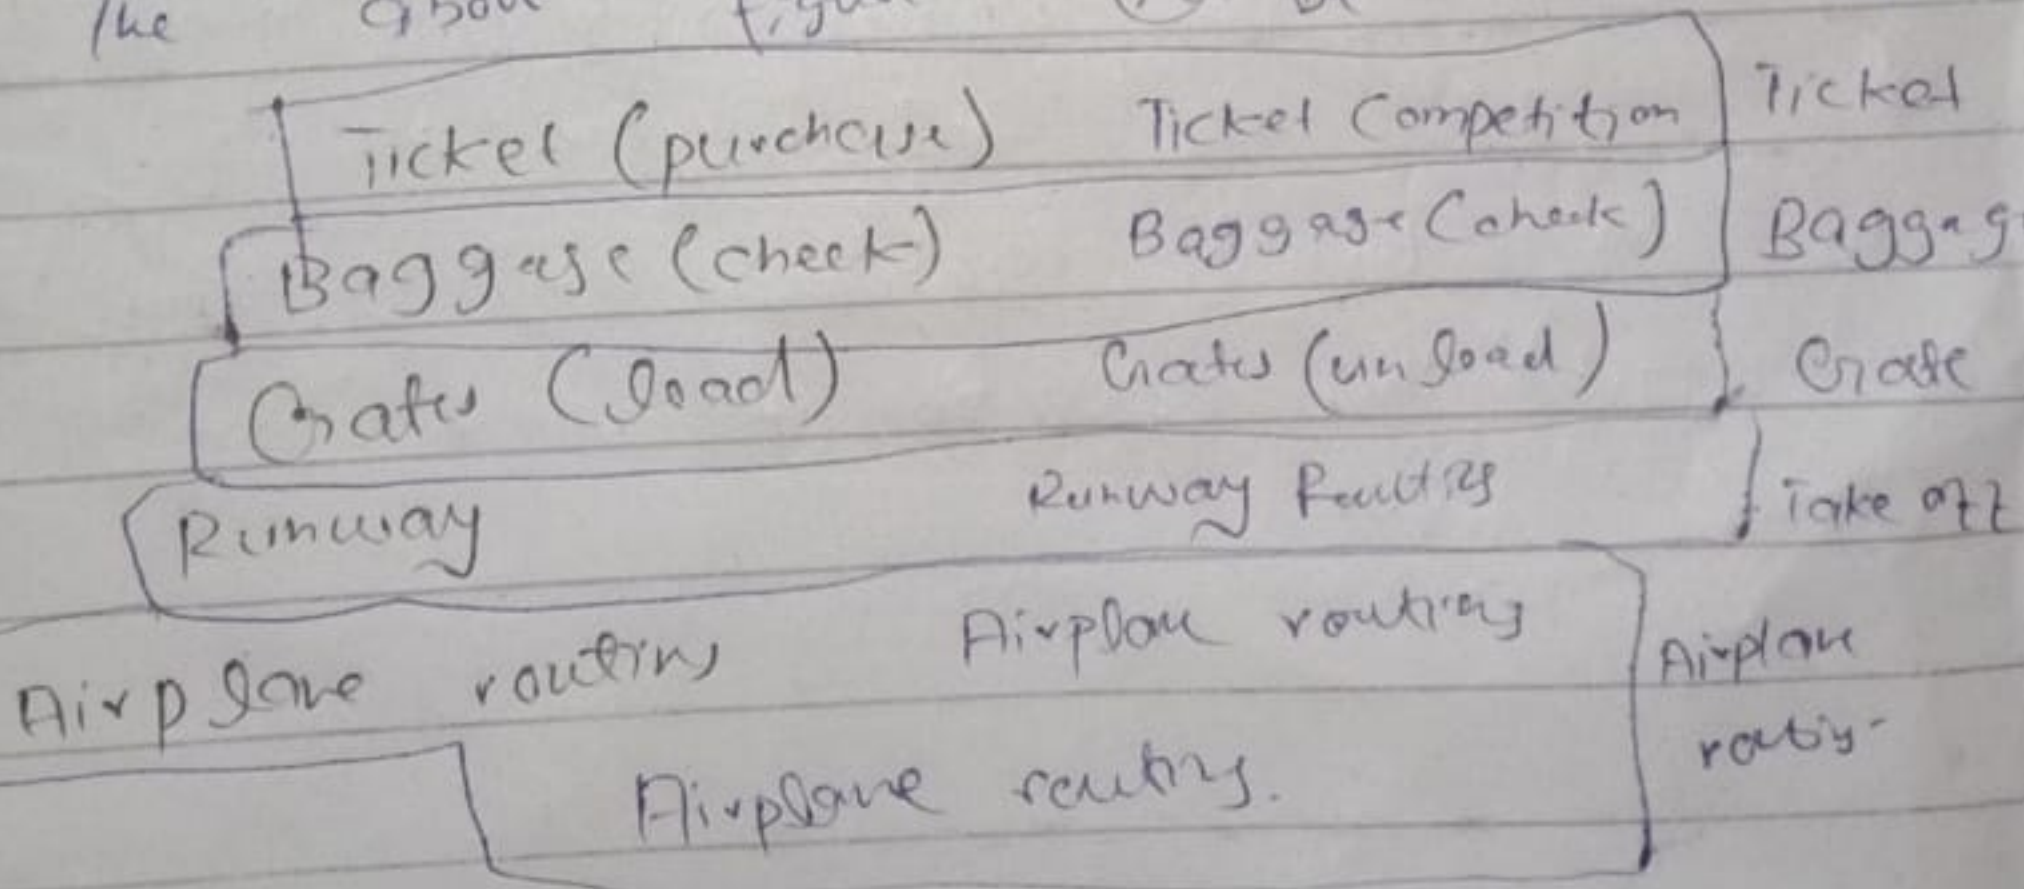 The
Ticket (purchase) Ticket Competition Ticket
Baggage (check) Baggage (check) Baggag
Gates (load) Gates (unload) Gate
Runway Runway Take off
Airplane routing Airplane routing Airplane
routing
Airplane routing.